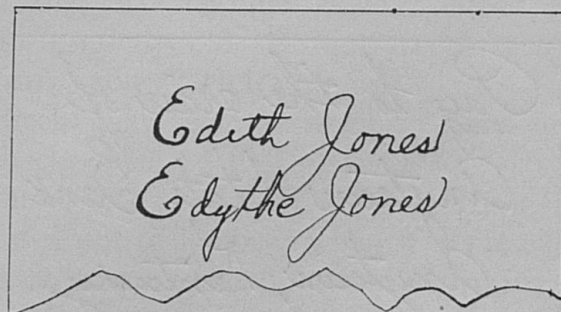 Edith Jones
Edythe Jones